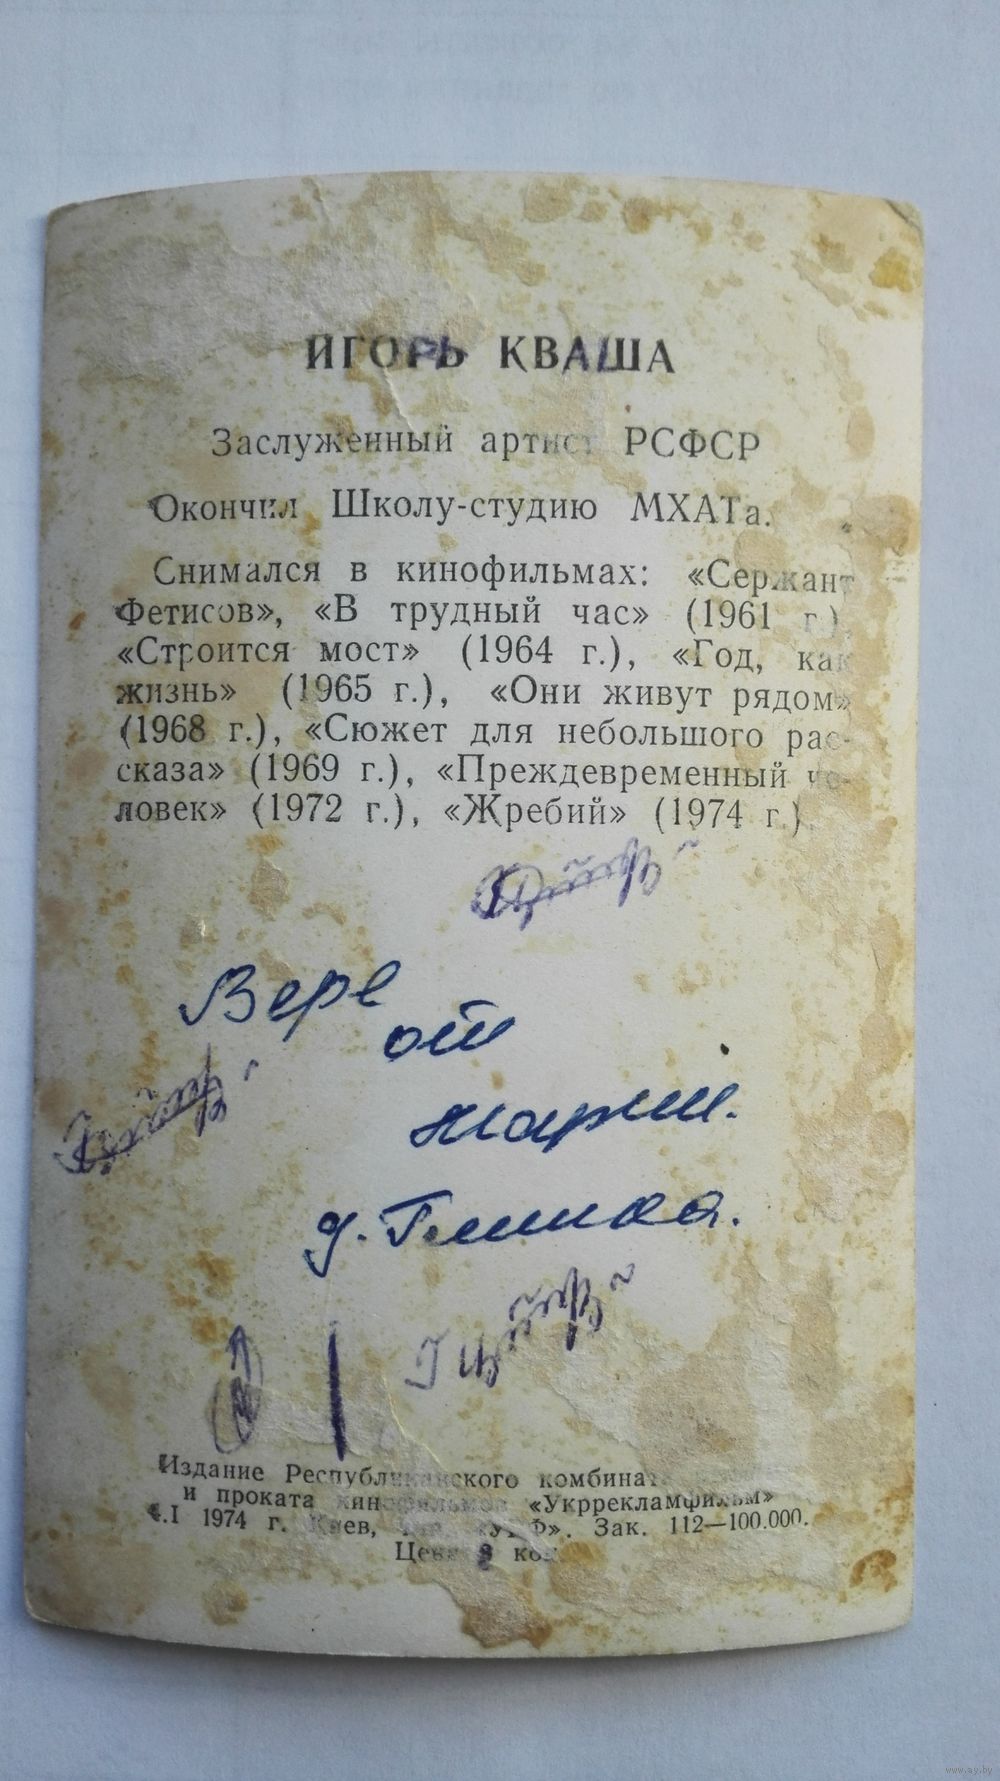 ИГОРЬ КВАША
Заслуженный артист РСФСР
Окончил Школу-студию МХАТа.
Снимался в кинофильмах: «Сержант
Фетисов», «В трудный час» (1961 г.),
«Строится мост» (1964 г.), «Год, как
жизнь» (1965 г.), «Они живут рядом»
(1968 г.), «Сюжет для небольшого рас-
сказа» (1969 г.), «Преждевременный че-
ловек» (1972 г.), «Жребий» (1974 г.).
Вере
от
Марии.
д.
Издание Республиканского комбината
и проката кинофильмов «Укррекламфильм»
I 1974 г. Киев, «УРФ». Зак. 112—100.000.
Цена коп.
www.ay.by